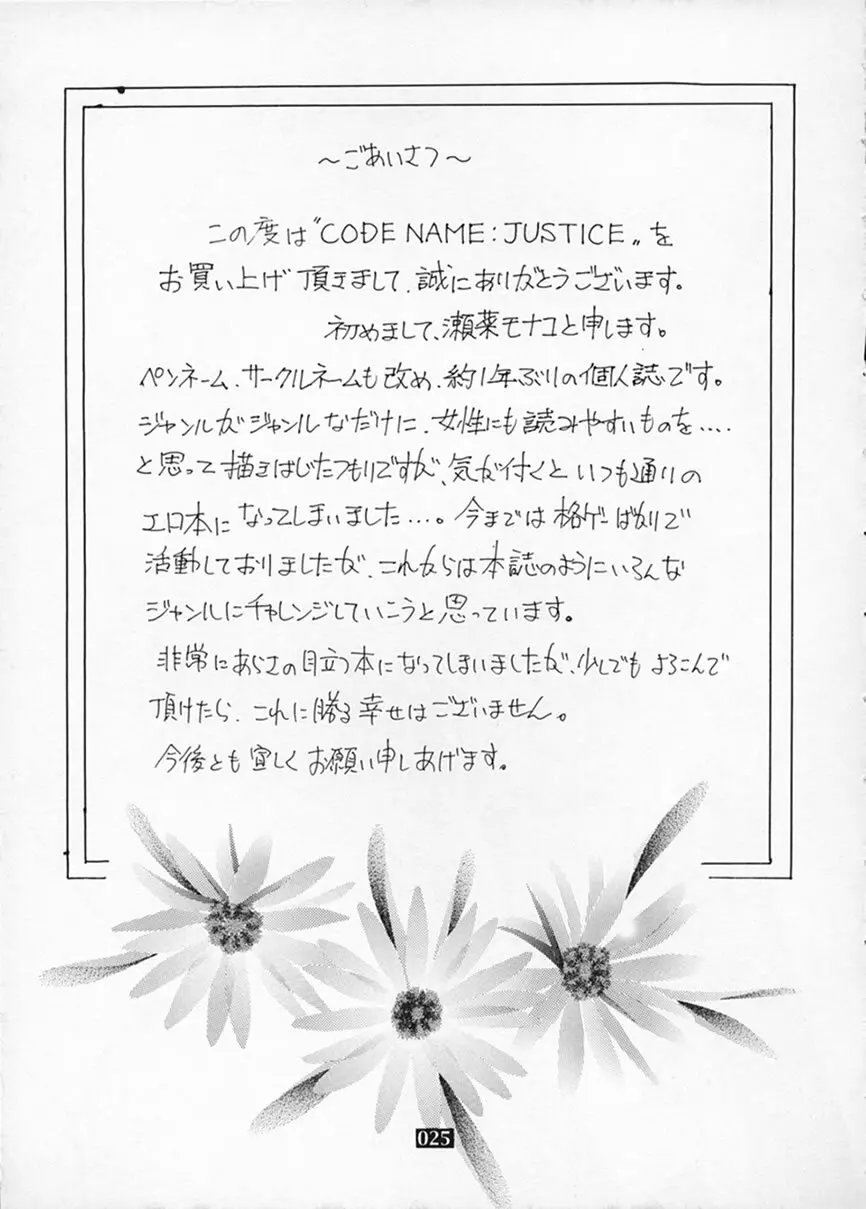 ～ごあいさつ～
この度は〝CODE NAME:JUSTICE〟を
お買い上げ頂きまして、誠にありがとうございます。
初めまして、瀬菜モナコと申します。
ペンネーム、サークルネームも改め、約1年ぶりの個人誌です。
ジャンルがジャンルなだけに、女性にも読みやすいものを‥‥
と思って描きはじたつもりですが、気が付くといつも通りの
エロ本になってしまいました…。今までは格ゲーばかりで
活動しておりましたが、これからは本誌のようにいろんな
ジャンルにチャレンジしていこうと思っています。
非常にあらさの目立つ本になってしまいましたが、少しでもよろこんで
頂けたら、これに勝る幸せはございません。
今後とも宜しくお願い申しあげます。
025